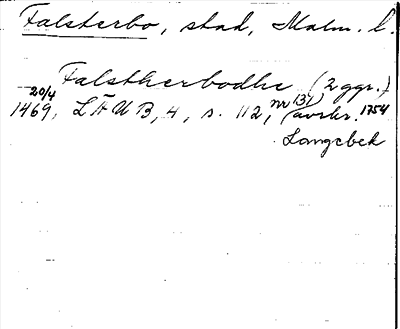 Falsterbo, stad, Malm. l.
Falstherbodhe (2 ggr.)
20/4 nr 137
1469, LÄUB, 4, s. 112, (avskr. 1754
Langebek